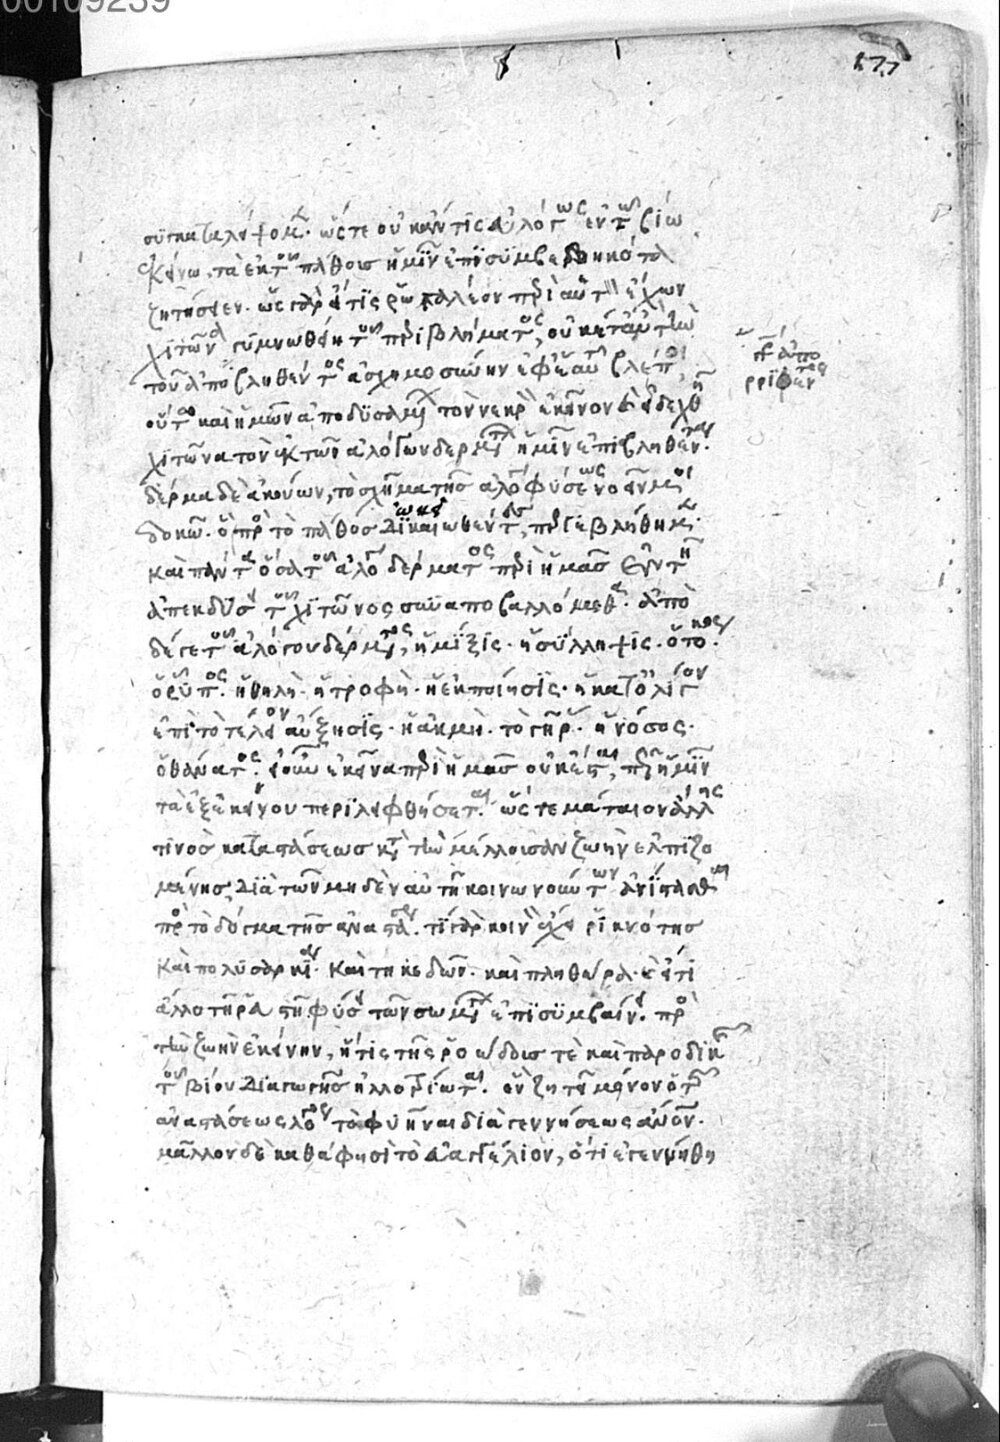 00109239
177
συγκαταλήψομ. ὥστε οὐκ ἄν τις εὐλόγως ἐν τῷ βίῳ
ἐκείνῳ, τὰ ἐκ τοῦ πάθους ἡμῖν ἐπισυμβεβηκότα
ζητήσειεν. ὡς γὰρ εἴ τις ῥωγαλέον περὶ αὐτὸν ἔχων
χιτῶνα γυμνωθείη τοῦ περιβλήματος, οὐκέτ' ἂν τὴν
τοῦ ἀποβληθέντος ἀσχημοσύνην ἐφ' ἑαυτοῦ βλέποι,
οὕτω καὶ ἡμῶν ἀποδυσαμένων τὸν νεκρὸν ἐκεῖνον καὶ εἰδεχθῆ
χιτῶνα τὸν ἐκ τῶν ἀλόγων δερμάτων ἡμῖν ἐπιβληθέντα.
δέρμα δὲ ἀκούων, τὸ σχῆμα τῆς ἀλόγου φύσεως νοεῖν μοι
δοκῶ. ᾧ πρὸς τὸ πάθος οἰκειωθέντες, περιεβλήθημεν.
καὶ πάντα ὅσα τοῦ ἀλόγου δέρματος περὶ ἡμᾶς ἐν τῇ
ἀπεκδύσει τοῦ χιτῶνος συναποβαλλόμεθα. ἀπὸ
δέ γε τοῦ ἀλόγου δέρματος, ἡ μίξις. ἡ σύλληψις. ὁ τόκος.
ὁ ῥύπος. ἡ θηλὴ. ἡ τροφὴ. ἡ ἐκποίησις. ἡ κατ' ὀλίγον
ἐπὶ τὸ τέλειον αὔξησις. ἡ ἀκμὴ. τὸ γῆρας. ἡ νόσος.
ὁ θάνατος. εἰ οὖν ἐκεῖνα περὶ ἡμᾶς οὐκ ἔσται, πῶς ἡμῖν
τὰ ἐξ ἐκείνου περιλειφθήσεται. ὥστε μάταιον ἄλλης
τινὸς καταστάσεως κατὰ τὴν μέλλουσαν ζωὴν ἐλπιζο
μένης διὰ τῶν μηδὲν αὐτῇ κοινωνούντων ἀνίστασθαι
πρὸς τὸ δόγμα τῆς ἀναστάσεως. τί γὰρ κοινὸν ἔχει ῥικνότης
καὶ πολυσαρκία. καὶ τηκεδών. καὶ πληθώρα. καὶ εἴ τι
ἄλλο τῇ ῥευστῇ φύσει τῶν σωμάτων ἐπισυμβαίνει. πρὸς
τὴν ζωὴν ἐκείνην, ἥτις τῆς ῥοώδους τε καὶ παροδικῆς
τοῦ βίου διαγωγῆς ἠλλοτρίωται. ἓν ζητεῖ μόνον ὁ τῆς
ἀναστάσεως λόγος τὸ φυῆναι διὰ γεννήσεως ἄνθρωπον.
μᾶλλον δὲ καθά φησὶ τὸ εὐαγγέλιον, ὅτι ἐγεννήθη
ἀπο
ρριφέντος